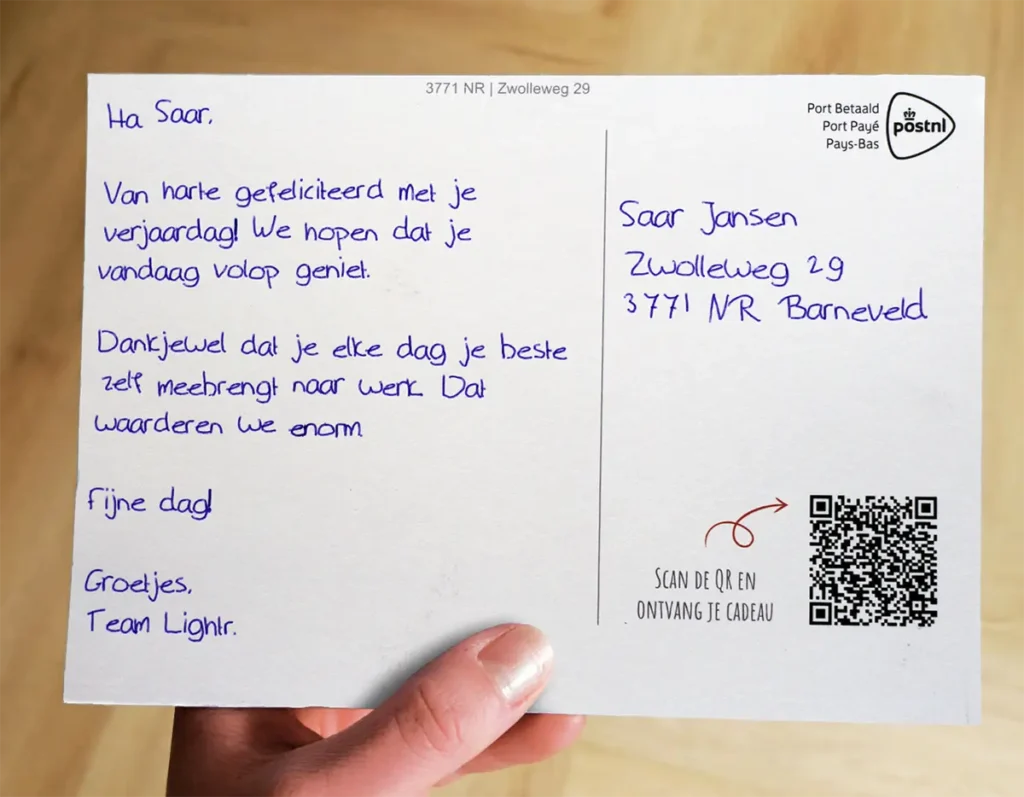 3771 NR | Zwolleweg 29
Ha Saar,
Van harte gefeliciteerd met je
verjaardag! We hopen dat je
vandaag volop geniet.
Dankjewel dat je elke dag je beste
zelf meebrengt naar werk. Dat
waarderen we enorm
Fijne dag!
Groetjes,
Team Lightr.
Port Betaald
Port Payé
Pays-Bas
postnl
Saar Jansen
Zwolleweg 29
3771 NR Barneveld
SCAN DE QR EN
ONTVANG JE CADEAU